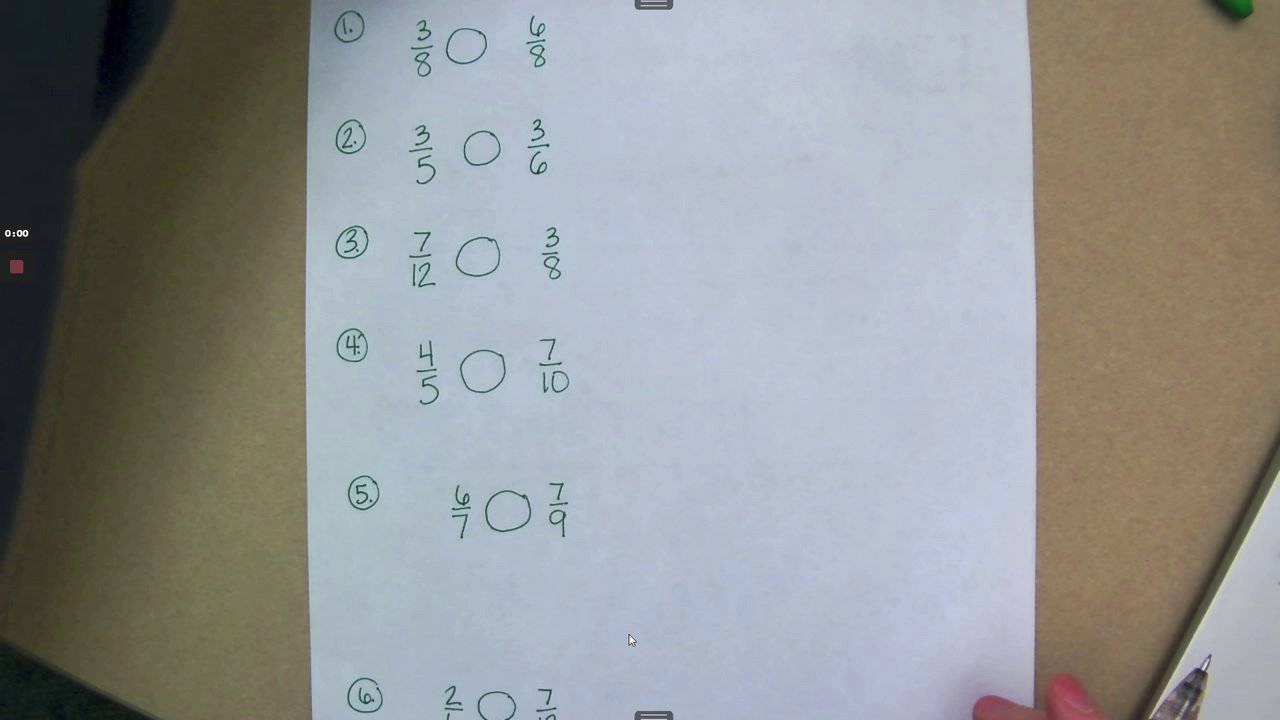 0:00
1. 3/8 ○ 6/8
2. 3/5 ○ 3/6
3. 7/12 ○ 3/8
4. 4/5 ○ 7/10
5. 6/7 ○ 7/9
6. 2 ○ 7